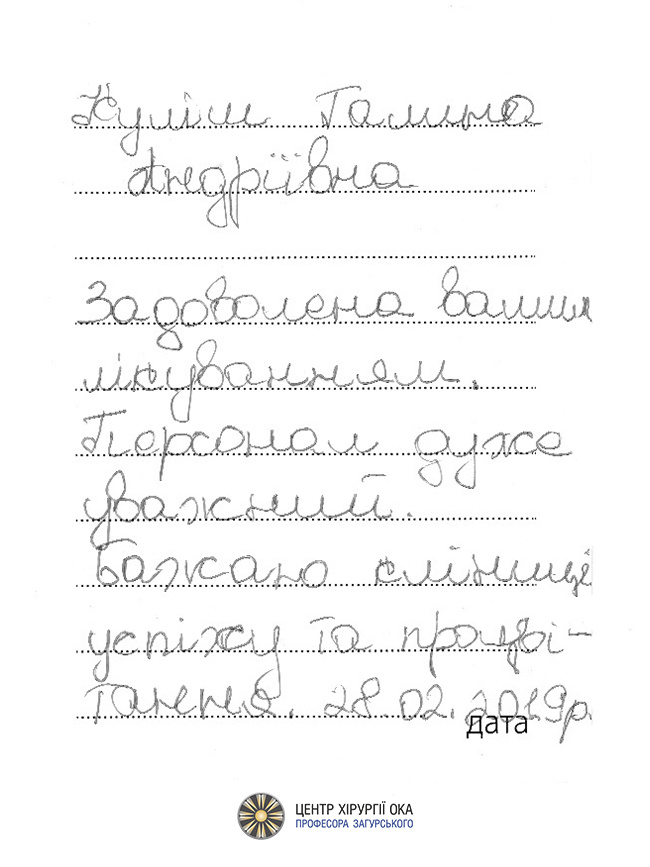 Куліш Галина
Андріївна
Задоволена вашим
лікуванням.
Персонал дуже
уважний.
Бажаю клініці
успіху та процві-
тання. 28.02.2019р.
дата
ЦЕНТР ХІРУРГІЇ ОКА
ПРОФЕСОРА ЗАГУРСЬКОГО